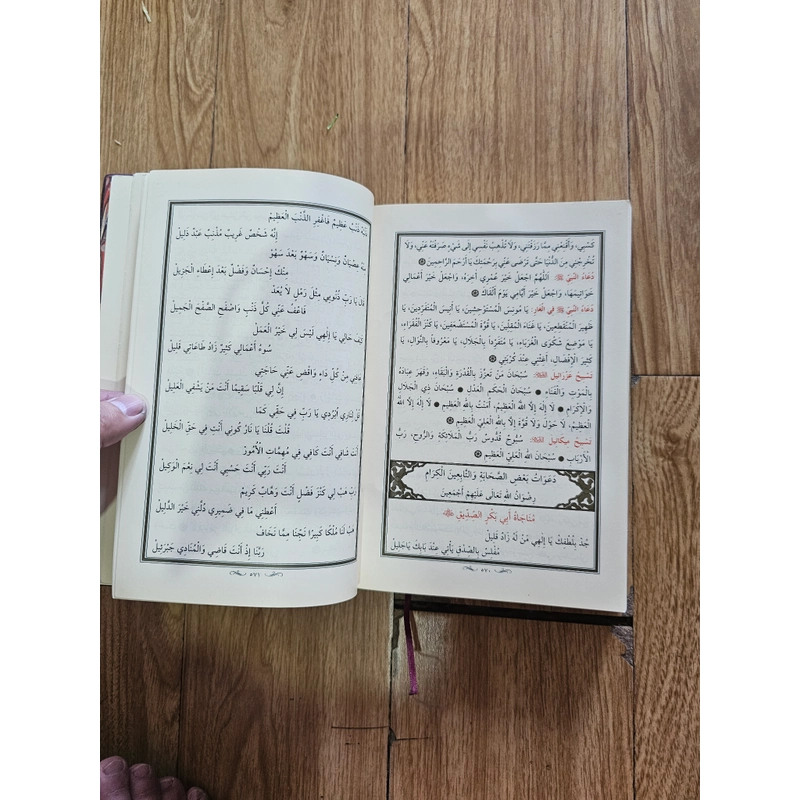 كَسْبِي، وَأَقْنِعْنِي مِمَّا رَزَقْتَنِي، وَلَا تُذْهِبْ نَفْسِي إِلَى شَيْءٍ صَرَفْتَهُ عَنِّي، وَلَا
تُخْرِجْنِي مِنَ الدُّنْيَا حَتَّى تَرْضَى عَنِّي بِرَحْمَتِكَ يَا أَرْحَمَ الرَّاحِمِينَ
دُعَاءُ النَّبِيِّ ﷺ: اَللّٰهُمَّ اجْعَلْ خَيْرَ عُمْرِي آخِرَهُ، وَاجْعَلْ خَيْرَ أَعْمَالِي
خَوَاتِيمَهَا، وَاجْعَلْ خَيْرَ أَيَّامِي يَوْمَ أَلْقَاكَ
دُعَاءُ النَّبِيِّ ﷺ فِي الْغَارِ: يَا مُونِسَ الْمُسْتَوْحِشِينَ، يَا أَنِيسَ الْمُتَفَرِّدِينَ، يَا
ظَهِيرَ الْمُنْقَطِعِينَ، يَا غَنَاءَ الْمُقِلِّينَ، يَا قُوَّةَ الْمُسْتَضْعَفِينَ، يَا كَنْزَ الْفُقَرَاءِ،
يَا مَوْضِعَ شَكْوَى الْغُرَبَاءِ، يَا مُتَفَرِّدًا بِالْجَلَالِ، يَا مَعْرُوفًا بِالنَّوَالِ، يَا
كَثِيرَ الْإِفْضَالِ، أَغِثْنِي عِنْدَ كُرْبَتِي
تَسْبِيحُ عَزْرَائِيلَ: سُبْحَانَ مَنْ تَعَزَّزَ بِالْقُدْرَةِ وَالْبَقَاءِ، وَقَهَرَ عِبَادَهُ
بِالْمَوْتِ وَالْفَنَاءِ ● سُبْحَانَ الْحَكَمِ الْعَدْلِ ● سُبْحَانَ ذِي الْجَلَالِ
وَالْإِكْرَامِ ● لَا إِلٰهَ إِلَّا اللهُ الْعَظِيمُ، آمَنْتُ بِاللهِ الْعَظِيمِ ● لَا إِلٰهَ إِلَّا اللهُ
الْعَظِيمُ، لَا حَوْلَ وَلَا قُوَّةَ إِلَّا بِاللهِ الْعَلِيِّ الْعَظِيمِ
تَسْبِيحُ مِيكَائِيلَ: سُبُّوحٌ قُدُّوسٌ رَبُّ الْمَلَائِكَةِ وَالرُّوحِ، رَبُّ
الْأَرْبَابِ ● سُبْحَانَ اللهِ الْعَلِيِّ الْعَظِيمِ
دَعَوَاتُ بَعْضِ الصَّحَابَةِ وَالتَّابِعِينَ الْكِرَامِ
رِضْوَانُ اللهِ تَعَالَى عَلَيْهِمْ أَجْمَعِينَ
مُنَاجَاةُ أَبِي بَكْرٍ الصِّدِّيقِ
جُدْ بِلُطْفِكَ يَا إِلٰهِي مَنْ لَهُ زَادٌ قَلِيلْ
مُفْلِسٌ بِالصِّدْقِ يَأْتِي عِنْدَ بَابِكَ يَا جَلِيلْ
٥٧٠
ذَنْبُهُ ذَنْبٌ عَظِيمٌ فَاغْفِرِ الذَّنْبَ الْعَظِيمْ
إِنَّهُ شَخْصٌ غَرِيبٌ مُذْنِبٌ عَبْدٌ ذَلِيلْ
مِنْهُ عِصْيَانٌ وَنِسْيَانٌ وَسَهْوٌ بَعْدَ سَهْوٍ
مِنْكَ إِحْسَانٌ وَفَضْلٌ بَعْدَ إِعْطَاءِ الْجَزِيلْ
قَالَ يَا رَبِّ ذُنُوبِي مِثْلُ رَمْلٍ لَا يُعَدْ
فَاعْفُ عَنِّي كُلَّ ذَنْبٍ وَاصْفَحِ الصَّفْحَ الْجَمِيلْ
كَيْفَ حَالِي يَا إِلٰهِي لَيْسَ لِي خَيْرُ الْعَمَلْ
سُوءُ أَعْمَالِي كَثِيرٌ زَادُ طَاعَاتِي قَلِيلْ
عَافِنِي مِنْ كُلِّ دَاءٍ وَاقْضِ عَنِّي حَاجَتِي
إِنَّ لِي قَلْبًا سَقِيمًا أَنْتَ مَنْ يَشْفِي الْعَلِيلْ
قُلْ لِنَارِي أَبْرِدِي يَا رَبِّ فِي حَقِّي كَمَا
قُلْتَ قُلْنَا يَا نَارُ كُونِي أَنْتِ فِي حَقِّ الْخَلِيلْ
أَنْتَ شَافِي أَنْتَ كَافِي فِي مُهِمَّاتِ الْأُمُورْ
أَنْتَ رَبِّي أَنْتَ حَسْبِي أَنْتَ لِي نِعْمَ الْوَكِيلْ
رَبِّ هَبْ لِي كَنْزَ فَضْلٍ أَنْتَ وَهَّابٌ كَرِيمْ
أَعْطِنِي مَا فِي ضَمِيرِي دُلَّنِي خَيْرَ الدَّلِيلْ
هَبْ لَنَا مُلْكًا كَبِيرًا نَجِّنَا مِمَّا نَخَافْ
رَبَّنَا إِذْ أَنْتَ قَاضِي وَالْمُنَادِي جَبْرَئِيلْ
٥٧١